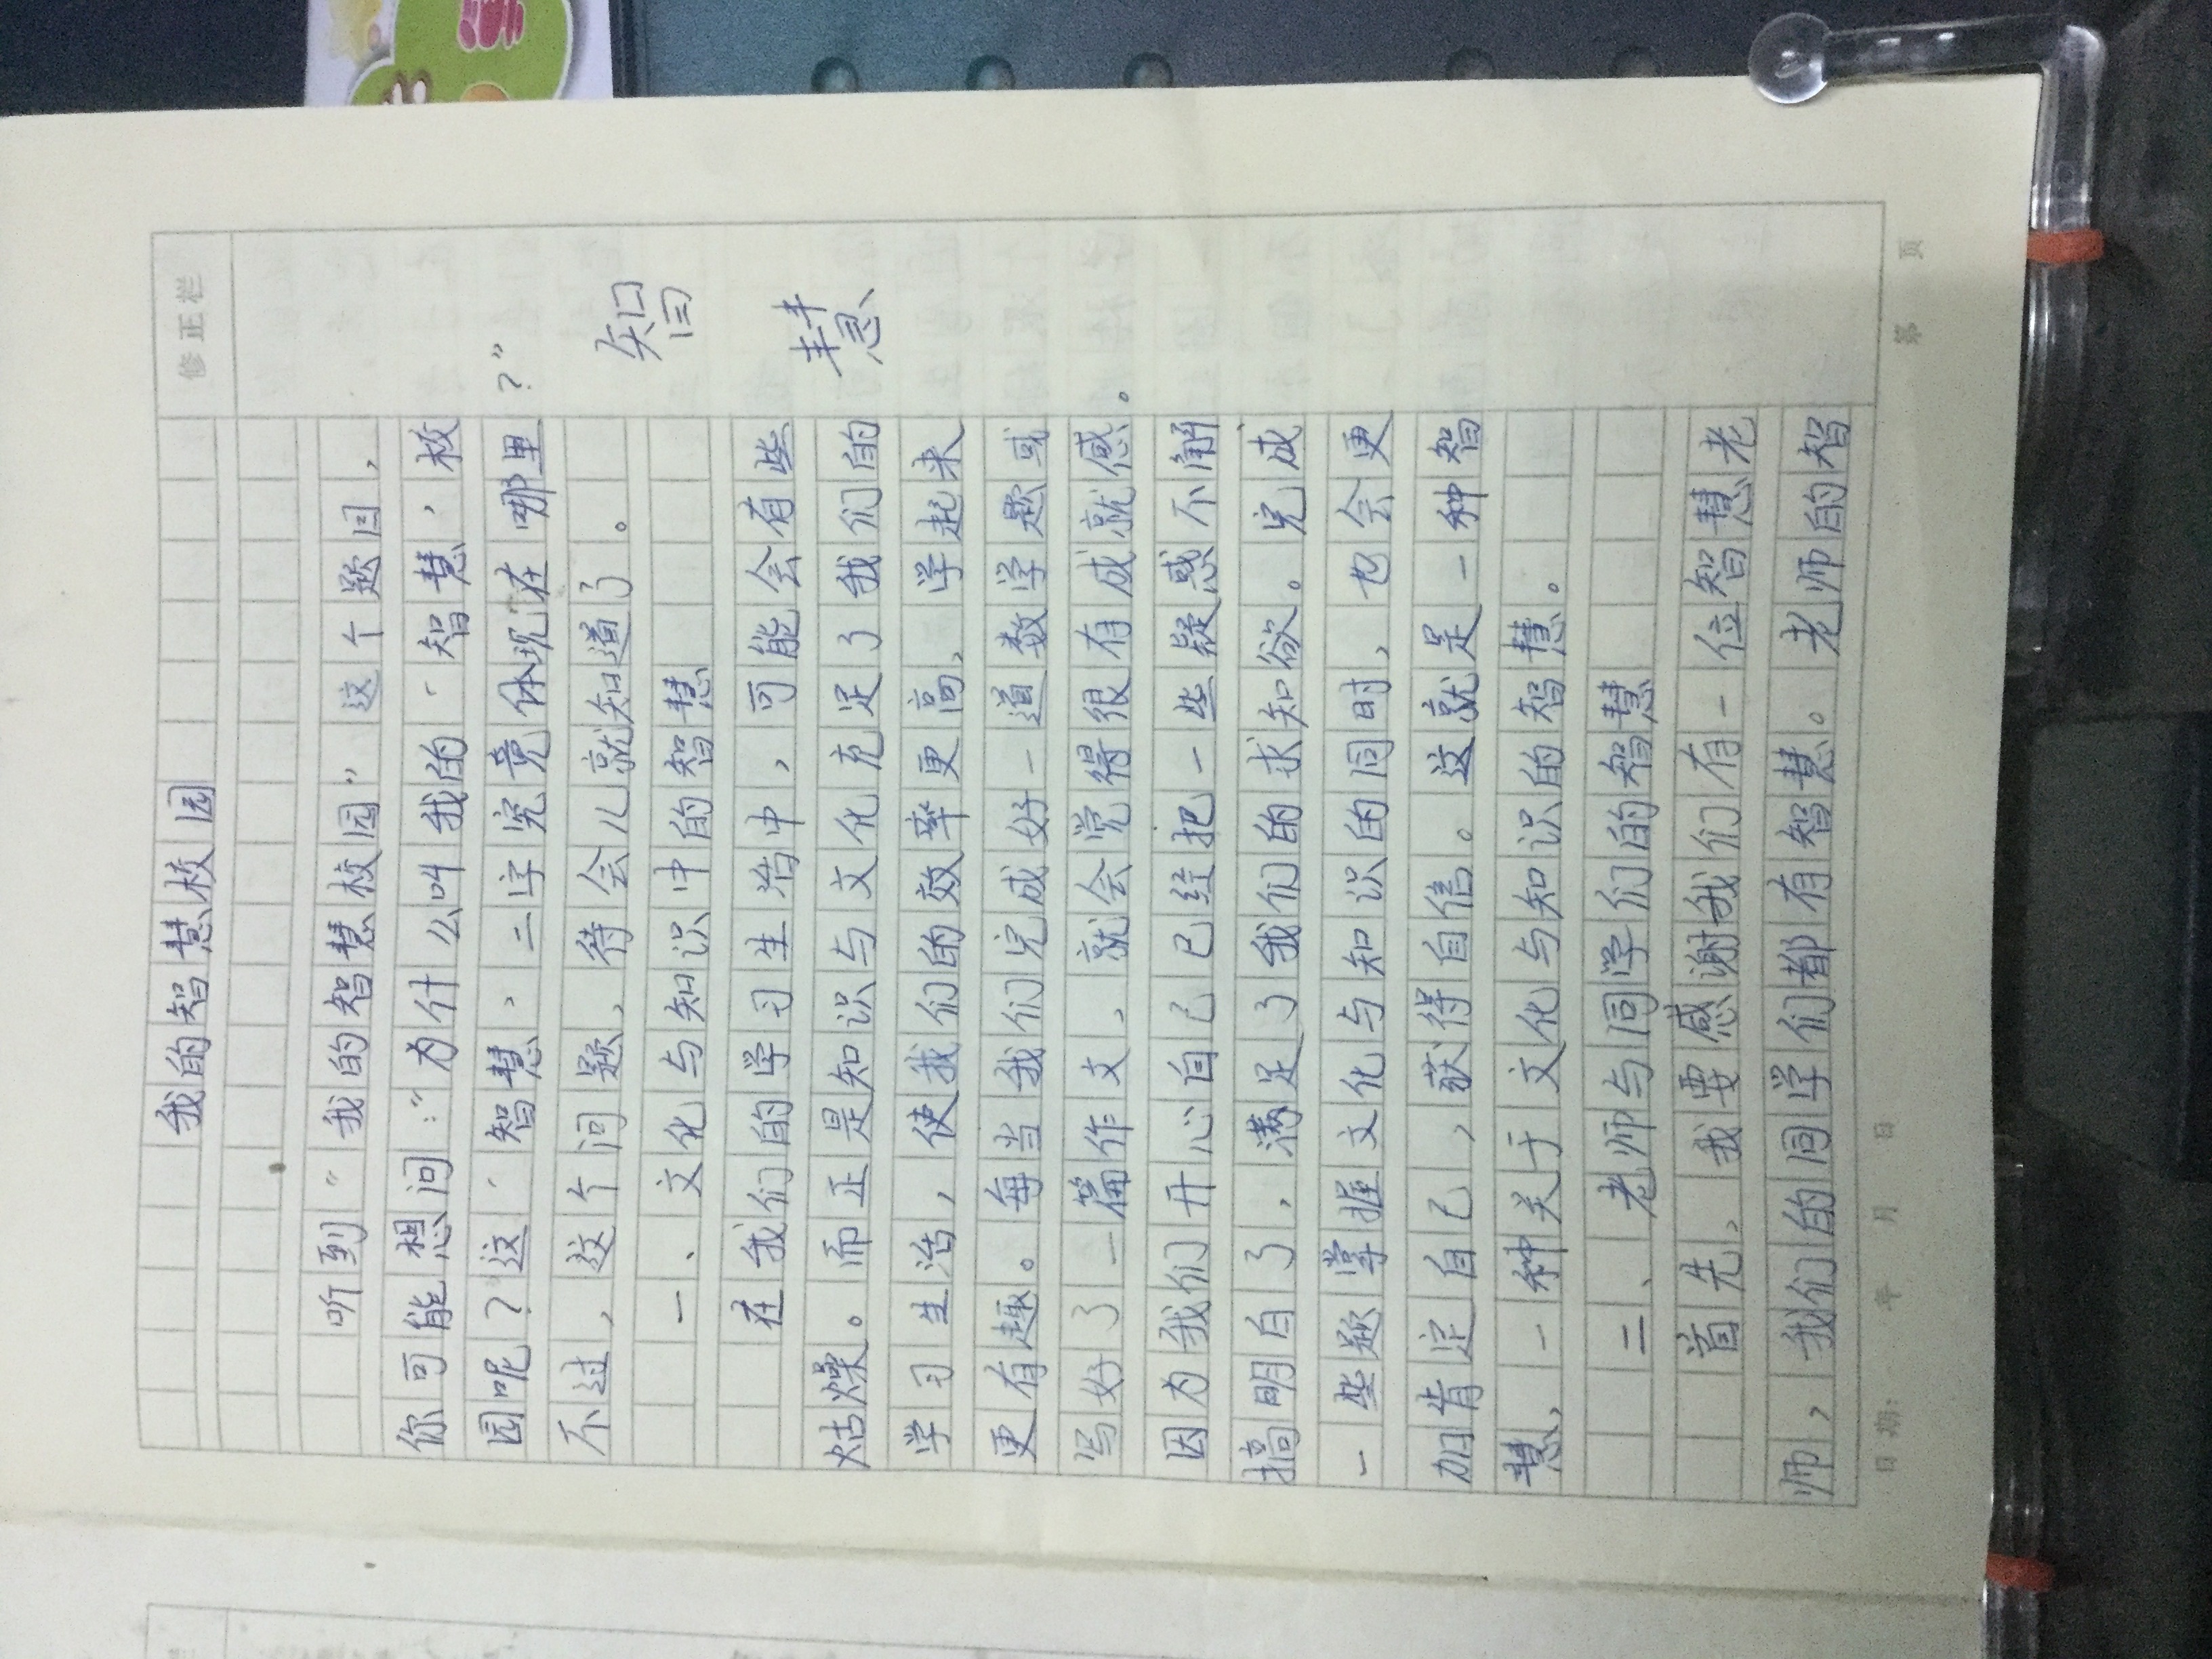 修正栏
我的智慧校园
听到“我的智慧校园”这个题目，
你可能想问：“为什么叫我的‘智慧’校
园呢？这‘智慧’二字究竟体现在哪里？”
不过，这个问题，待会儿就知道了。
智
一、文化与知识中的智慧
慧
在我们的学习生活中，可能会有些
枯燥。而正是知识与文化充足了我们的
学习生活，使我们的效率更高，学起来
更有趣。每当我们完成好一道数学题或
写好了一篇作文，就会觉得很有成就感。
因为我们开心自己已经把一些疑惑不解
搞明白了，满足了我们的求知欲。完成
一些题掌握文化与知识的同时，也会更
加肯定自己，获得自信。这就是一种智
慧，一种关于文化与知识的智慧。
二、老师与同学们的智慧
首先，我要感谢我们有一位智慧老
师，我们的同学们都有智慧。老师的智
日期： 年 月 日 第 页